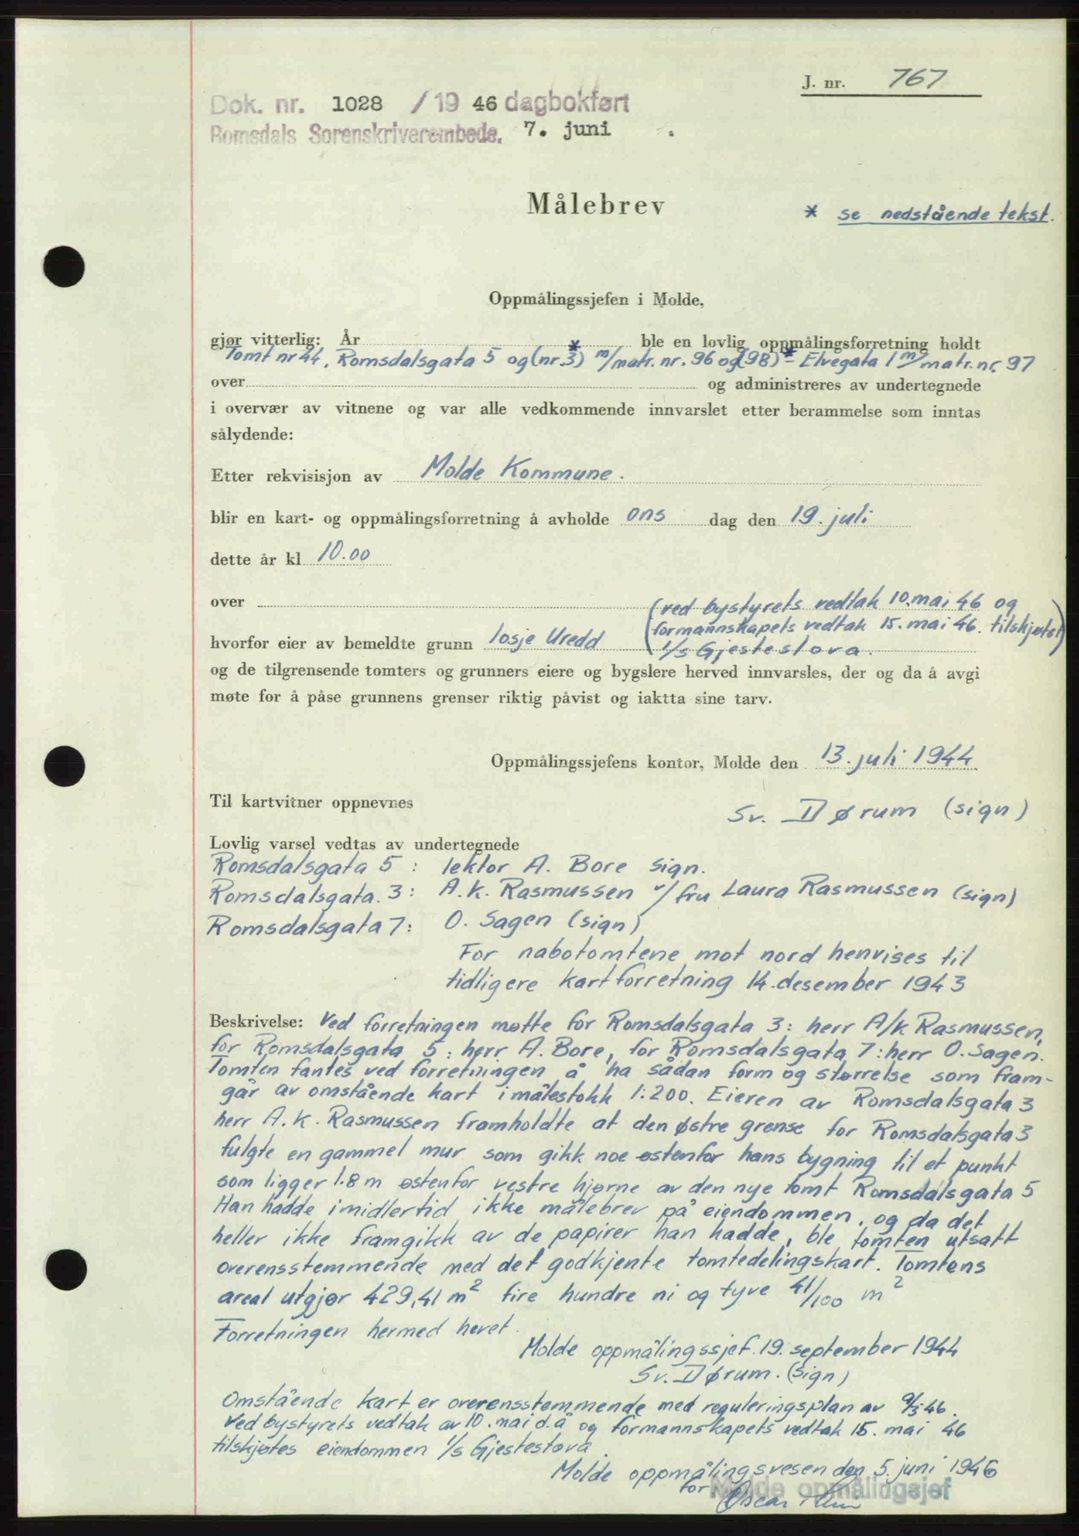 J. nr. 767
Dok. nr. 1028 /19 46 dagbokført
Romsdals Sorenskriverembede. 7. juni .
Målebrev
* se nedstående tekst.
Oppmålingssjefen i Molde,
gjør vitterlig: År * ble en lovlig oppmålingsforretning holdt
Tomt nr 44, Romsdalsgata 5 og (nr. 3) m/matr. nr. 96 og (98)* - Elvegata 1 m/matr. nr. 97
over og administreres av undertegnede
i overvær av vitnene og var alle vedkommende innvarslet etter berammelse som inntas
sålydende:
Etter rekvisisjon av Molde Kommune.
blir en kart- og oppmålingsforretning å avholde ons dag den 19. juli
dette år kl 10.00
over (ved bystyrets vedtak 10. mai 46 og
formannskapets vedtak 15. mai 46. tilskjøtet
hvorfor eier av bemeldte grunn losje Uredd I/S Gjestestova.)
og de tilgrensende tomters og grunners eiere og bygslere herved innvarsles, der og da å avgi
møte for å påse grunnens grenser riktig påvist og iaktta sine tarv.
Oppmålingssjefens kontor, Molde den 13. juli 1944
Til kartvitner oppnevnes
Sv. D Ørum (sign)
Lovlig varsel vedtas av undertegnede
Romsdalsgata 5 : lektor A. Bore sign.
Romsdalsgata. 3: A. K. Rasmussen v/fru Laura Rasmussen (sign)
Romsdalsgata 7: O. Sagen (sign)
For nabotomtene mot nord henvises til
tidligere kartforretning 14. desember 1943
Beskrivelse: Ved forretningen møtte for Romsdalsgata 3: herr A/K Rasmussen,
for Romsdalsgata 5: herr A. Bore, for Romsdalsgata 7: herr O. Sagen.
Tomten fantes ved forretningen å ha sådan form og størrelse som fram-
går av omstående kart i målestokk 1:200. Eieren av Romsdalsgata 3
herr A. K. Rasmussen framholdte at den østre grense for Romsdalsgata 3
fulgte en gammel mur som gikk noe østenfor hans bygning til et punkt
som ligger 1.8 m østenfor vestre hjørne av den nye tomt Romsdalsgata 5
Han hadde imidlertid ikke målebrev på eiendommen, og da det
heller ikke framgikk av de papirer han hadde, ble tomten utsatt
overensstemmende med det godkjente tomtedelingskart. Tomtens
areal utgjør 429,41 m² fire hundre ni og tyve 41/100 m²
Forretningen hermed hevet.
Molde oppmålingssjef. 19. september 1944
Sv. D Ørum. (Sign)
Omstående kart er overensstemmende med reguleringsplan av 9/3 46.
Ved bystyrets vedtak av 10. mai d.å og formannskapets vedtak 15. mai 46
tilskjøtes eiendommen I/S Gjestestova.
Molde oppmålingsvesen den 5. juni 1946
for Molde opmålingsjef
Oscar